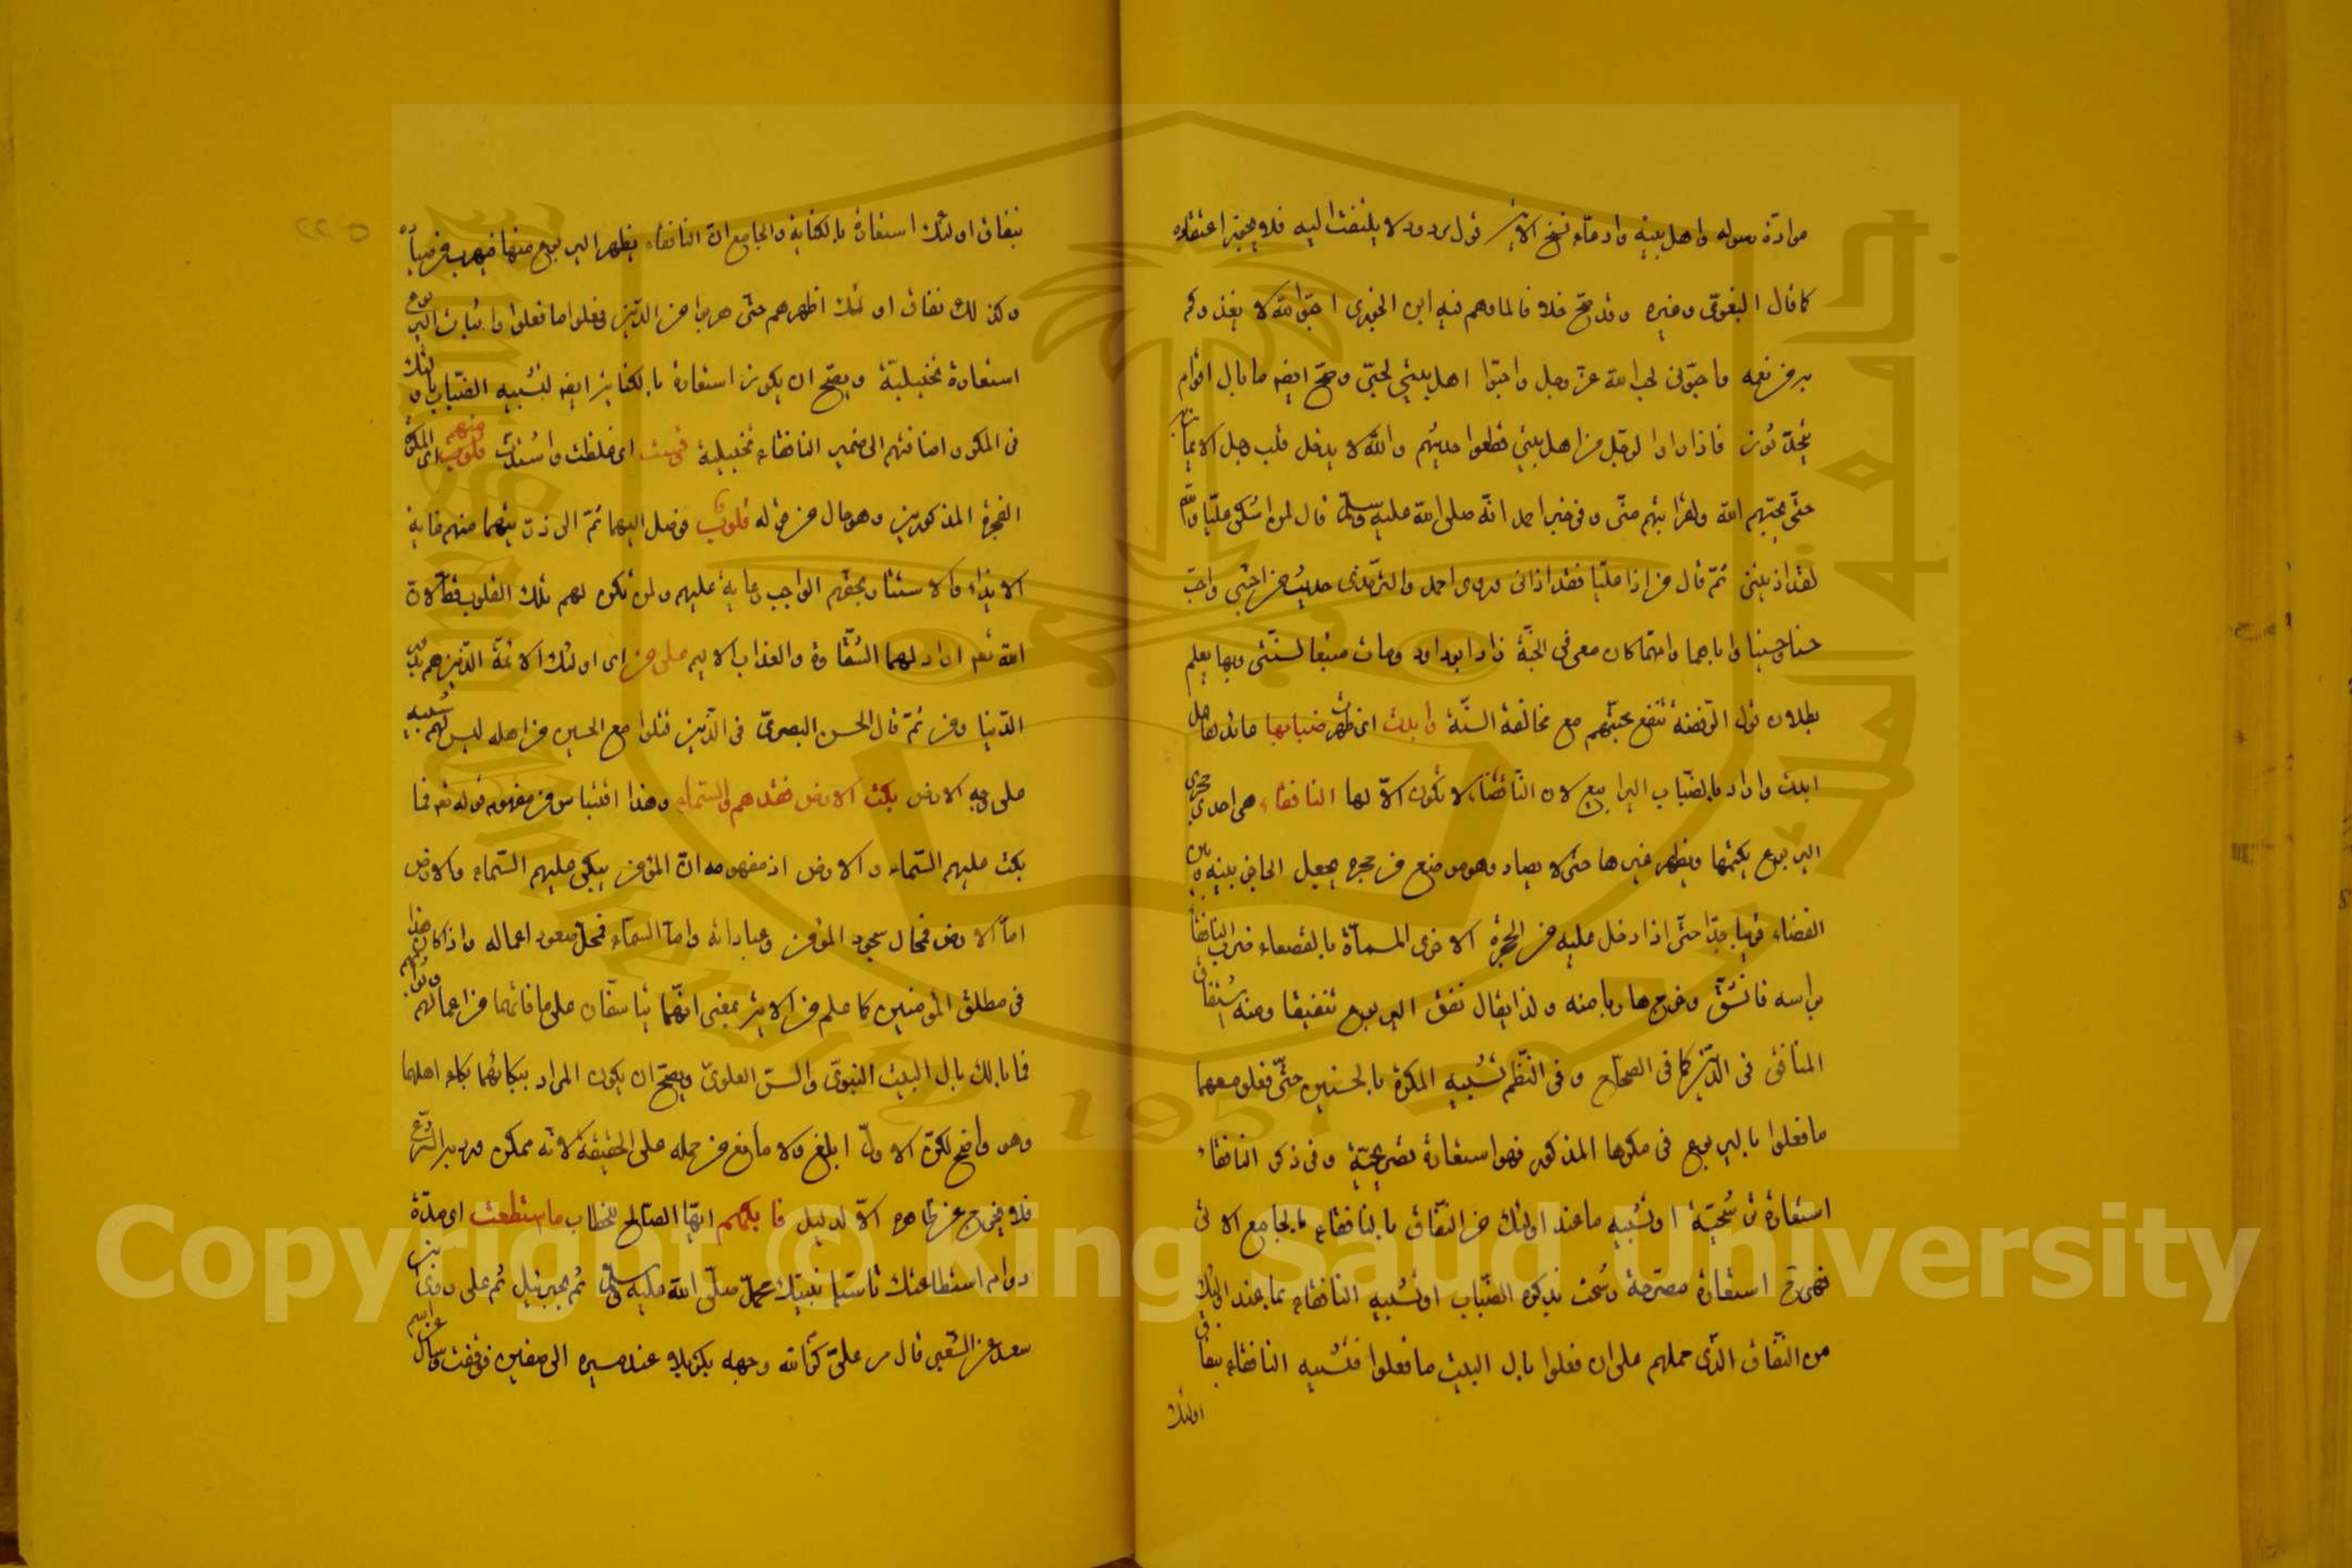 موادّة رسوله واهل بيته وادعاء نسخ الاية قول مردود لا يلتفت اليه فلا يجوز اعتقاده
كما قال البغوي وغيره وقد صح خلافا لما وهم فيه ابن الجوزي احبّوا الله لا يغذوكم
به من نعمه واحبّوني لحب الله عزّ وجل واحبّوا اهل بيتي لحبّي وصحّ ايضا ما بال اقوام
يتحدّثون فاذا راوا الرجل من اهل بيتي قطعوا حديثهم والله لا يدخل قلب رجل الايمان
حتّى يحبّهم لله ولقرابتهم منّي وفي خبر احمد انّه صلى الله عليه وسلم قال لمن اشتكى عليّا والله
لقد اذيتني ثمّ قال من اذا عليّا فقد اذاني وروى احمد والترمذي حديث من احبّني واحبّ
حسنا وحسينا واباهما وامّهما كان معي في الجنّة زاد ابو داود ومات متبعا لسنّتي وبها يعلم
بطلان قول الرّفضة تنفع محبّتهم مع مخالفة السنّة وابدت اي ظهرت ضبابها فاعل
ابدت واراد بالضّباب اليرابيع لان النّافقاء لا تكون الّا لها النافقاء هي احدى حجرتي
اليربوع يكتمها ويظهر غيرها حتى لا يصاد وهو موضع من حجره يجعل الحاجز بينه وبين
الفضاء قريبا جدّا حتّى اذا دخل عليه من الحجرة الاخرى المسمّاة بالقصعاء ضرب النافقاء
براسه فانشقّ وخرج هاربا منه ولذا يقال نفق اليربوع تنفيقا ومنه اشتقاق
المنافق في الدّين كما في الصحاح وفي النّظم تشبيه المكرة بالحسنين حتّى فعلوا معهما
ما فعلوا باليربوع في مكرها المذكور فهو استعارة تصريحيّة وفي ذكر النافقاء
استعارة ترشيحيّة او تشبيه ما عند اولئك من النّفاق بالنافقاء بالجامع الاتي
فهي استعارة مصرّحة رشحت بذكره الضّباب او تشبيه النافقاء بما عند اولئك
من النّفاق الّذي حملهم على ان فعلوا بال البيت ما فعلوا فتشبيه النافقاء بنفاق
اولئك
بنفاق اولئك استعارة بالكناية والجامع انّ النافقاء يظهر اليربوع منها فيهرب
وكذلك نفاق اولئك اظهرهم حتّى هربوا من الدّين وفعلوا ما فعلوا واثبات اليربوع
استعارة تخييليّة ويصّح ان يكون استعارة بالكناية ايضا لتشبيه الضّباب باولئك
في المكر واضافتهم الى ضمير النافقاء تخييلية قست اي غلظت واشتدّت قلوب منهم اي المكرة
الفجرة المذكورين وهو حال من قوله قلوب فوصل اليهما ثمّ الى ذريتهما منهم غاية
الايذاء والاستئثار بحقهم الواجب رعاية عليهم ولم تكن لهم تلك القلوب الا لان
الله تعالى اراد لهما الشّقاوة والعذاب الاليم على من اي اولئك الائمّة الّذين هم
الدّنيا ومن ثمّ قال الحسن البصريّ في الّذين قتلوا مع الحسين من اهله ليس لهم شبيه
على وجه الارض بكت الارض فقدهم والسّماء وهذا اقتباس من مفهوم قوله تعالى فما
بكت عليهم السّماء والارض اذ مفهومه انّ المؤمن يبكي عليهم السّماء والارض
امّا الارض فمحال سجود المؤمن وعباداته وامّا السّماء فمحلّ صعود اعماله واذا كان هذا
في مطلق المؤمنين كما علم من الاية بمعنى انّهما يتاسّفان على ما فاتهما من اعمالهم وثوابهم
فما بالك بال البيت النبويّ والسرّ العلويّ ويصحّ ان يكون المراد ببكائهما بكاء اهلهما
وهو واضح لكن الاوّل ابلغ ولا مانع من حمله على الحقيقة لانّه ممكن ورد به الشرع
فلا يخرج عن ظاهره الّا لدليل فابكهم ايّها الصالح للخطاب ما استطعت اي مدّة
دوام استطاعتك تاسّيا بنبيّك محمّد صلّى الله عليه وسلم ثم بجبرئيل ثم على روى ابن
سعد عن الشعبي قال مر عليّ كرّم الله وجهه بكربلا عند مسيره الى صفين فوقف وسال عن اسم